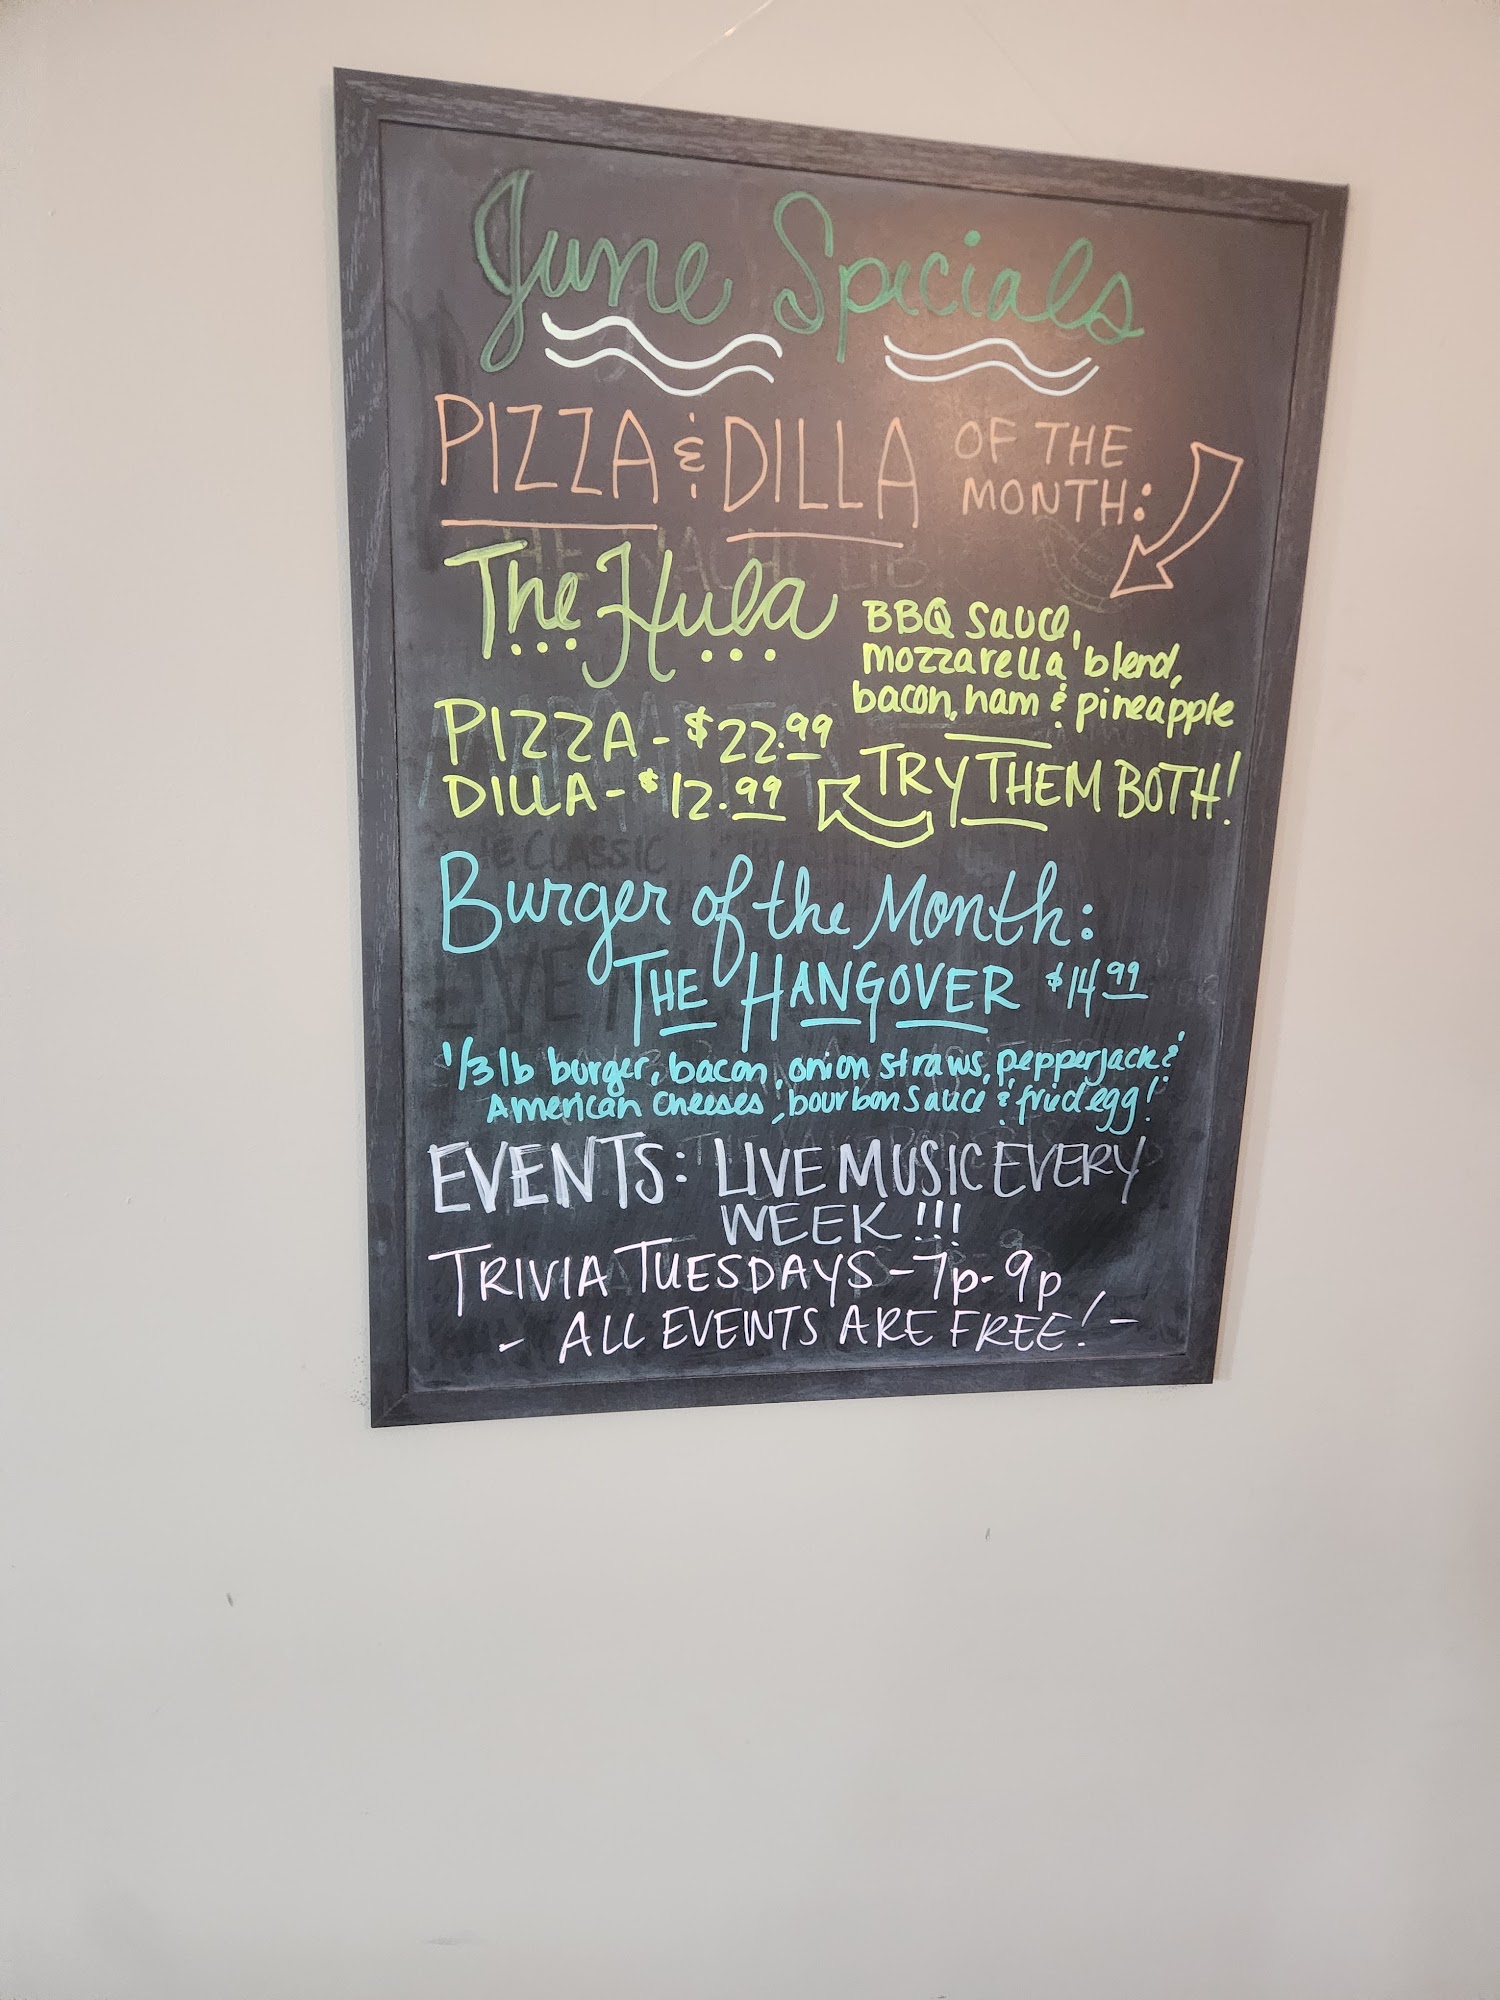 June Specials
PIZZA & DILLA OF THE
MONTH:
The Hula
BBQ sauce,
mozzarella blend,
bacon, ham & pineapple
PIZZA - $22.99
DILLA - $12.99
TRY THEM BOTH!
Burger of the Month:
THE HANGOVER $14.99
1/3 lb burger, bacon, onion straws, pepperjack &
American cheeses, bourbon sauce & fried egg!
EVENTS: LIVE MUSIC EVERY
WEEK!!!
TRIVIA TUESDAYS - 7p-9p
- ALL EVENTS ARE FREE! -